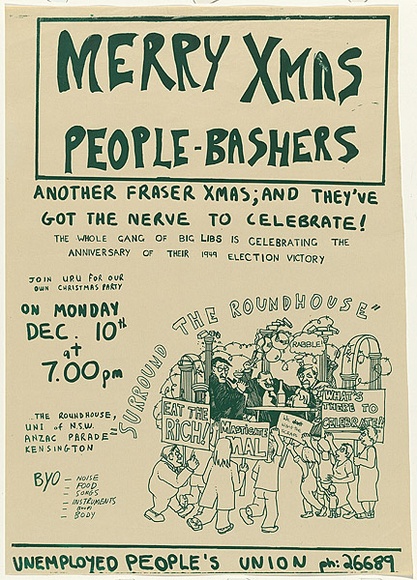 MERRY XMAS
PEOPLE-BASHERS
ANOTHER FRASER XMAS; AND THEY'VE
GOT THE NERVE TO CELEBRATE!
THE WHOLE GANG OF BIG LIBS IS CELEBRATING THE
ANNIVERSARY OF THEIR 1949 ELECTION VICTORY
JOIN UPU FOR OUR
OWN CHRISTMAS PARTY
ON MONDAY
DEC. 10th
at
7.00 pm
SURROUND THE ROUNDHOUSE"
THE ROUNDHOUSE,
UNI of N.S.W.
ANZAC PARADE
KENSINGTON
BYO — NOISE
— FOOD
— SONGS
— INSTRUMENTS
— BODY
RABBLE!
EAT THE
RICH!
MASTICATE
MAL
WHAT'S
THERE TO
CELEBRATE!
UNEMPLOYED PEOPLE'S UNION ph: 26689